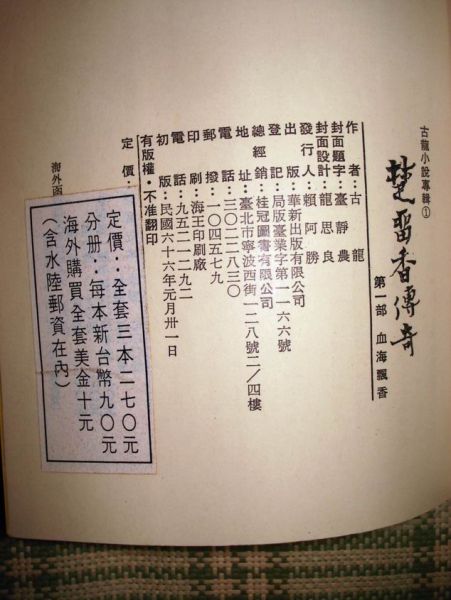 古龍小說專輯①
楚留香傳奇
第一部 血海飄香
作者：古龍
封面題字：臺靜農
封面設計：龍思良
發行人：賴阿勝
出版：華新出版有限公司
登記：局版臺業字第一一六六號
總經銷：桂冠圖書有限公司
地址：臺北市寧波西街一二八號二／四樓
電話：三〇二二八三〇
郵撥：一〇四五七九
印刷：海王印刷廠
電話：九五二一二九二
初版：民國六十六年元月卅一日
有版權・不准翻印
定價：
海外函
定價：全套三本二七〇元
分册：每本新台幣九〇元
海外購買全套美金十元
（含水陸郵資在內）